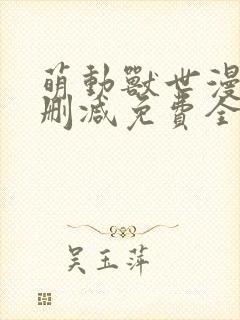 萌動獸世漫
刪減免費全
吴玉萍